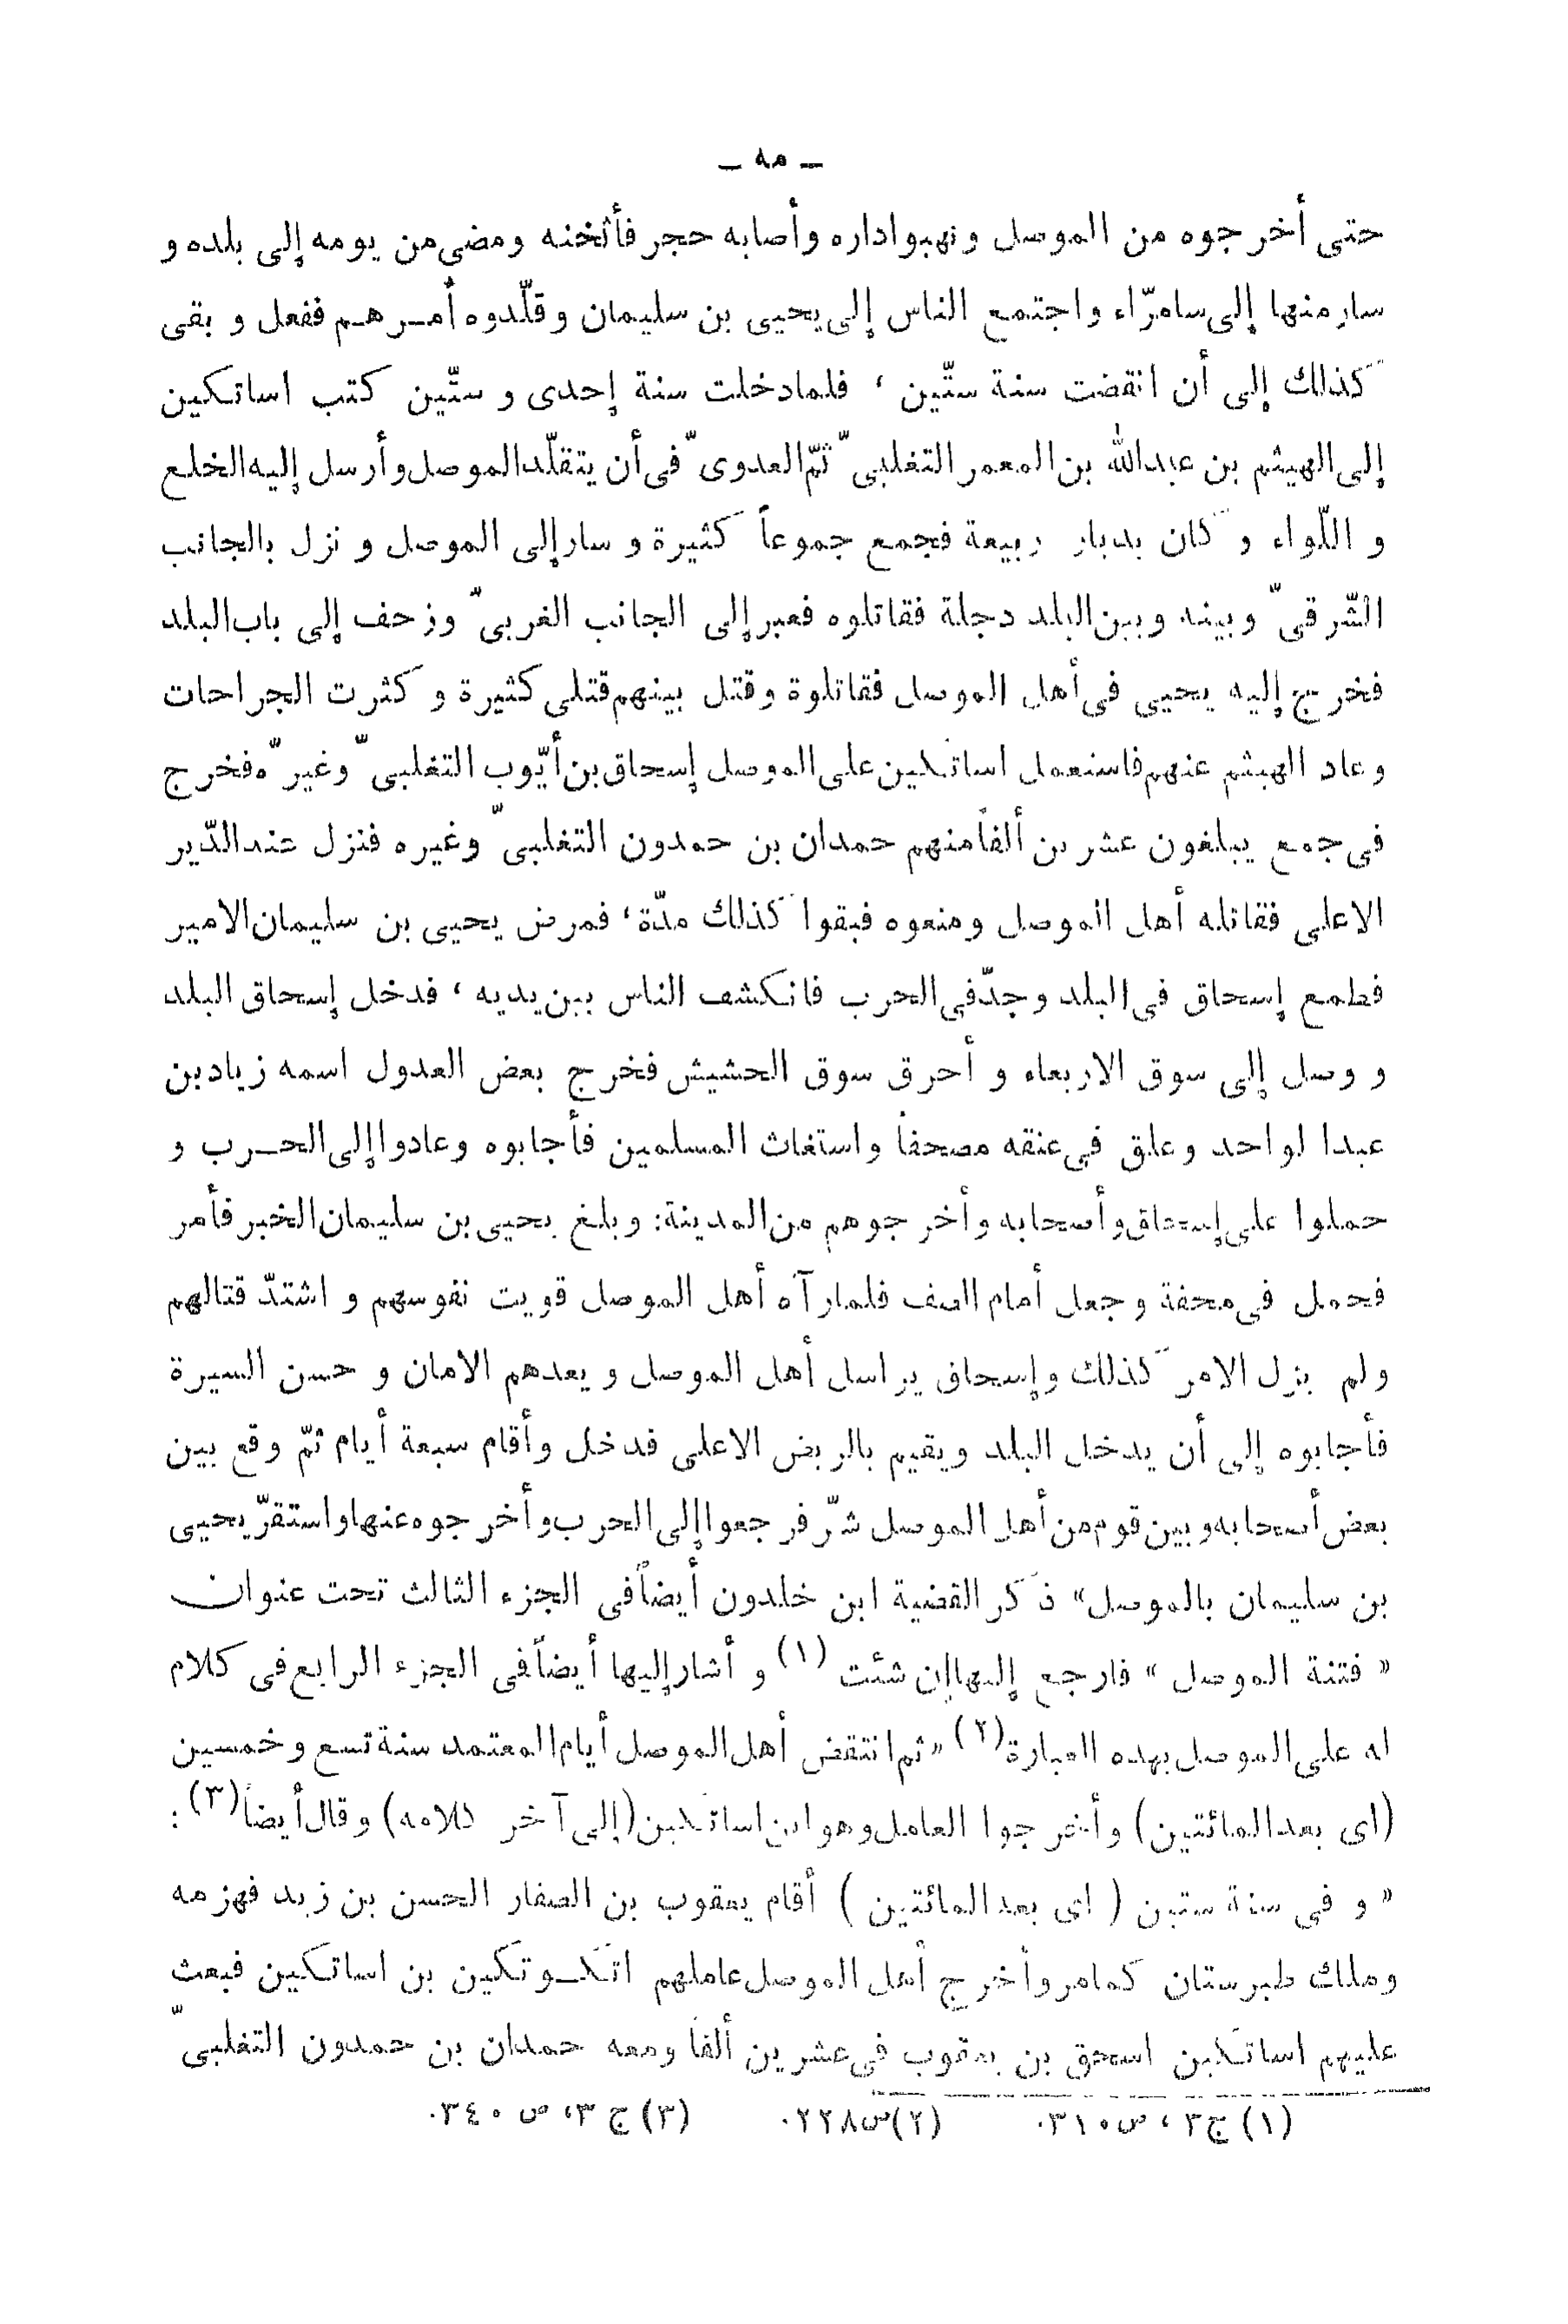 ـ مه ـ
حتى أخرجوه من الموصل ونهبوا داره وأصابه حجر فأثخنه ومضى من يومه إلى بلده و
سار منها إلى سامرّاء واجتمع الناس إلى يحيى بن سليمان وقلّدوه أمـرهـم ففعل و بقى
كذلك إلى أن انقضت سنة ستّين ، فلما دخلت سنة إحدى و ستّين كتب اساتكين
إلى الهيثم بن عبدالله بن المعمر التغلبىّ ثمّ العدوىّ فى أن يتقلّد الموصل وأرسل إليه الخلع
و اللّواء و كان بديار ربيعة فجمع جموعاً كثيرة و سار إلى الموصل و نزل بالجانب
الشّرقىّ وبينه وبين البلد دجلة فقاتلوه فعبر إلى الجانب الغربىّ وزحف إلى باب البلد
فخرج إليه يحيى فى أهل الموصل فقاتلوة وقتل بينهم قتلى كثيرة و كثرت الجراحات
وعاد الهيثم عنهم فاستعمل اساتكين على الموصل إسحاق بن أيّوب التغلبىّ وغيرّه فخرج
فى جمع يبلغون عشرين ألفاً منهم حمدان بن حمدون التغلبىّ وغيره فنزل عند الدّير
الاعلى فقاتله أهل الموصل ومنعوه فبقوا كذلك مدّة، فمرض يحيى بن سليمان الامير
فطمع إسحاق فى البلد وجدّ فى الحرب فانكشف الناس بين يديه ، فدخل إسحاق البلد
و وصل إلى سوق الاربعاء و أحرق سوق الحشيش فخرج بعض العدول اسمه زياد بن
عبدا لواحد وعلق فى عنقه مصحفاً واستغاث المسلمين فأجابوه وعادوا إلى الحـرب و
حملوا على إسحاق وأصحابه وأخرجوهم من المدينة؛ وبلغ يحيى بن سليمان الخبر فأمر
فحمل فى محفة وجعل أمام الصف فلما رآه أهل الموصل قويت نفوسهم و اشتدّ قتالهم
ولم يزل الامر كذلك وإسحاق يراسل أهل الموصل ويعدهم الامان و حسن السيرة
فأجابوه إلى أن يدخل البلد ويقيم بالربض الاعلى فدخل وأقام سبعة أيام ثمّ وقع بين
بعض أصحابه وبين قوم من أهل الموصل شرّ فرجعوا إلى الحرب وأخرجوه عنها واستقرّ يحيى
بن سليمان بالموصل» ذكر القضية ابن خلدون أيضاً فى الجزء الثالث تحت عنوان
« فتنة الموصل » فارجع إليها إن شئت (١) و أشار إليها أيضاً فى الجزء الرابع فى كلام
له على الموصل بهذه العبارة(٢) «ثم انتقض أهل الموصل أيام المعتمد سنة تسع وخمسين
(اى بعد المائتين) وأخرجوا العامل وهو ابن اساتكين (إلى آخر كلامه) وقال أيضاً(٣):
« و فى سنة ستين ( اى بعد المائتين ) أقام يعقوب بن الصفار الحسن بن زيد فهزمه
وملك طبرستان كمامر وأخرج أهل الموصل عاملهم اتكـوتكين بن اساتكين فبعث
عليهم اساتكين اسحق بن يعقوب فى عشرين ألفاً ومعه حمدان بن حمدون التغلبىّ
(١) ج٣ ، ص٣١٥. (٢)ص٢٢٨. (٣) ج ٣، ص ٣٤٥.